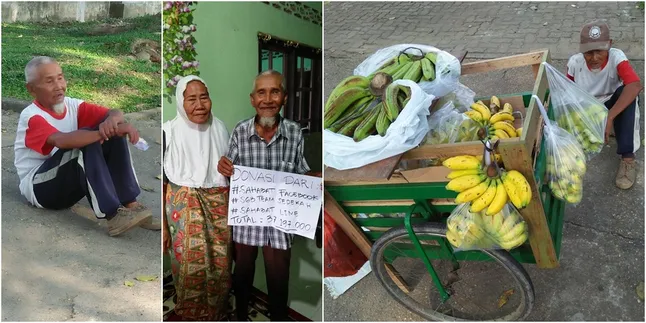 DONASI DARI
#SAHABAT FACEBOOK
#SGB TEAM SEDEKAH
#SAHABAT LINE
TOTAL : 37.197.000